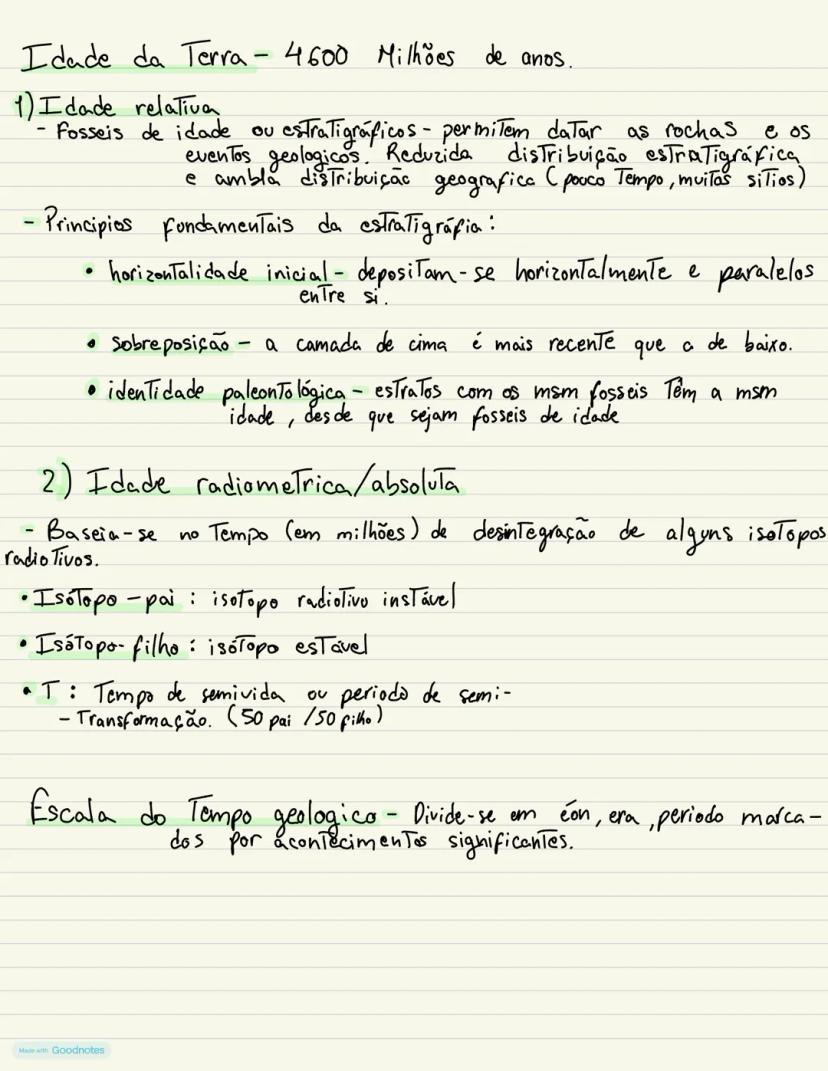 Idade da Terra - 4600 Milhões de anos.
1) Idade relativa
- Fosseis de idade ou estratigráficos - permitem datar as rochas e os
eventos geologicos. Reduzida distribuição estratigráfica
e ambla distribuição geografica (pouco Tempo, muitos sitios)
- Principios fundamentais da estratigráfia:
• horizontalidade inicial - depositam-se horizontalmente e paralelos
entre si.
• sobreposição - a camada de cima é mais recente que a de baixo.
• identidade paleontológica - estratos com os msm fosseis Têm a msm
idade, desde que sejam fosseis de idade
2) Idade radiometrica/absoluta
- Baseia-se no Tempo (em milhões) de desintegração de alguns isotopos
radiotivos.
• Isótopo - pai : isotopo radiotivo instável
• Isótopo- filho : isótopo estável
• T : Tempo de semivida ou periodo de semi-
- Transformação. (50 pai /50 filho)
Escala do Tempo geologico - Divide-se em éon, era, periodo marca-
dos por acontecimentos significantes.
Made with Goodnotes